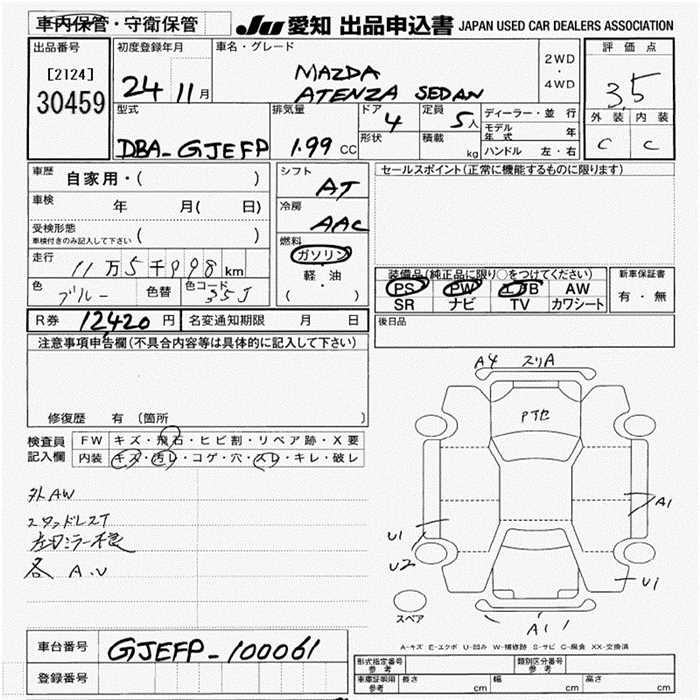 車内保管・守衛保管
JU 愛知 出品申込書 JAPAN USED CAR DEALERS ASSOCIATION
出品番号
[2124]
30459
初度登録年月
24 11月
車名・グレード
MAZDA
ATENZA SEDAN
2WD
・
4WD
評価点
3,5
外装 内装
C C
型式
DBA-GJEFP
排気量
1.99 CC
ドア
4
形状
定員
5人
積載
kg
ディーラー・並行
モデル年式 年
ハンドル 左・右
車歴 自家用・( )
車検 年 月( 日)
受検形態
車検付きのみ記入して下さい ( )
走行
11万5千998km
色
ブルー
色替
色コード
35J
シフト
AT
冷房
AAC
燃料
ガソリン
軽・油
( )
セールスポイント(正常に機能するものに限ります)
装備品(純正品に限り○をつけてください)
PS PW エアB AW
SR ナビ TV カワシート
新車保証書
有・無
R券 12,420円
名変通知期限 月 日
後日品
注意事項申告欄(不具合内容等は具体的に記入して下さい)
修復歴 有 (箇所
検査員
記入欄
FW キズ・飛石・ヒビ割・リペア跡・X要
内装 キズ・汚レ・コゲ・穴・スレ・キレ・破レ
外AW
スタッドレスT
各 A.U
A4 スリA
A1
U1
U2
U1
A1
スペア
A-キズ E-エクボ U-凹み W-補修跡 S-サビ C-腐食 XX-交換済
車台番号 GJEFP-100061
登録番号
形式指定番号
参考
類別区分番号
参考
車庫証明用
参考
長さ cm
幅 cm
高さ cm